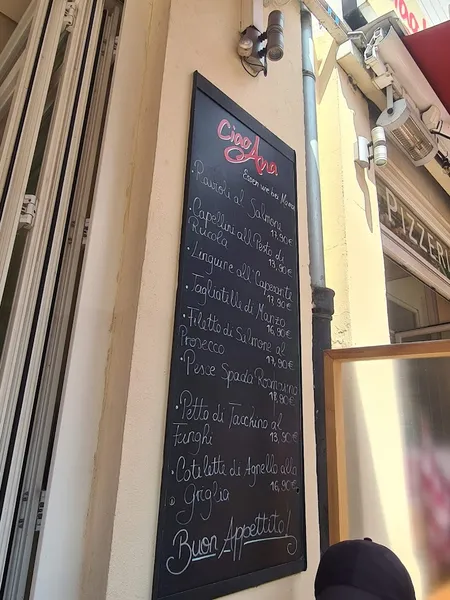 Ciao Ana
Essen wie bei Mama
• Ravioli al Salmone
17,90€
• Capellini all Pesto di
Rucola 13,90€
• Linguine all' Caperante
17,90€
• Tagliatelle di Manzo
16,90€
• Filetto di Salmone al
Prosecco 17,90€
• Pesce Spada
18,90€
• Petto di Tacchino al
Funghi 13,90€
• Cotelette di Agnello alla
Griglia 16,90€
Buon Appetito!
PIZZERI